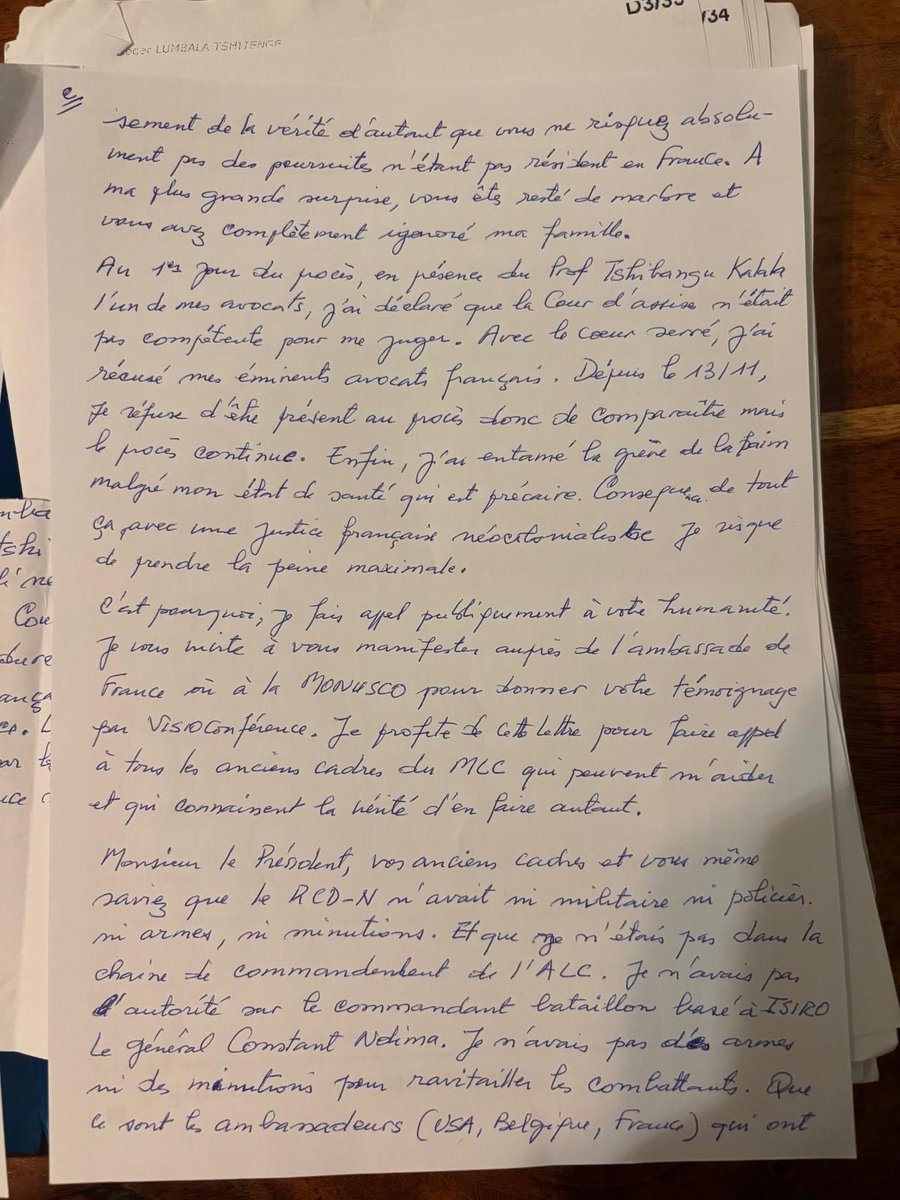 D3/35
/34
Roger LUMBALA TSHITENGE
2
sement de la vérité d'autant que vous ne risquez absolu-
ment pas des poursuites n'étant pas résident en France. A
ma plus grande surprise, vous êtes resté de marbre et
vous avez complètement ignoré ma famille.
Au 1er jour du procès, en présence du Prof Tshibangu Kalala
l'un de mes avocats, j'ai déclaré que la Cour d'assise n'était
pas compétente pour me juger. Avec le cœur serré, j'ai
récusé mes éminents avocats français. Dépuis le 13/11,
Je réfuse d'être présent au procès donc de comparaître mais
le procès continue. Enfin, j'ai entamé la grève de la faim
malgré mon état de santé qui est précaire. Consequence de tout
ça, avec une Justice française néocolonialiste Je risque
de prendre la peine maximale.
C'est pourquoi, je fais appel publiquement à votre humanité.
Je vous invite à vous manifester auprès de l'ambassade de
France où à la MONUSCO pour donner votre témoignage
par Visioconférence. Je profite de cette lettre pour faire appel
à tous les anciens cadres du MLC qui peuvent m'aider
et qui connaissent la vérité d'en faire autant.
Monsieur le Président, vos anciens cadres et vous même
saviez que le RCD-N n'avait ni militaire ni policier.
ni armes, ni minutions. Et que je n'étais pas dans la
chaine de commandement de l'ALC. Je n'avais pas
d'autorité sur le commandant bataillon basé à ISIRO
Le général Constant Ndima. Je n'avais pas des armes
ni des minutions pour ravitailler les combattants. Que
ce sont les ambassadeurs (USA, Belgique, France) qui ont